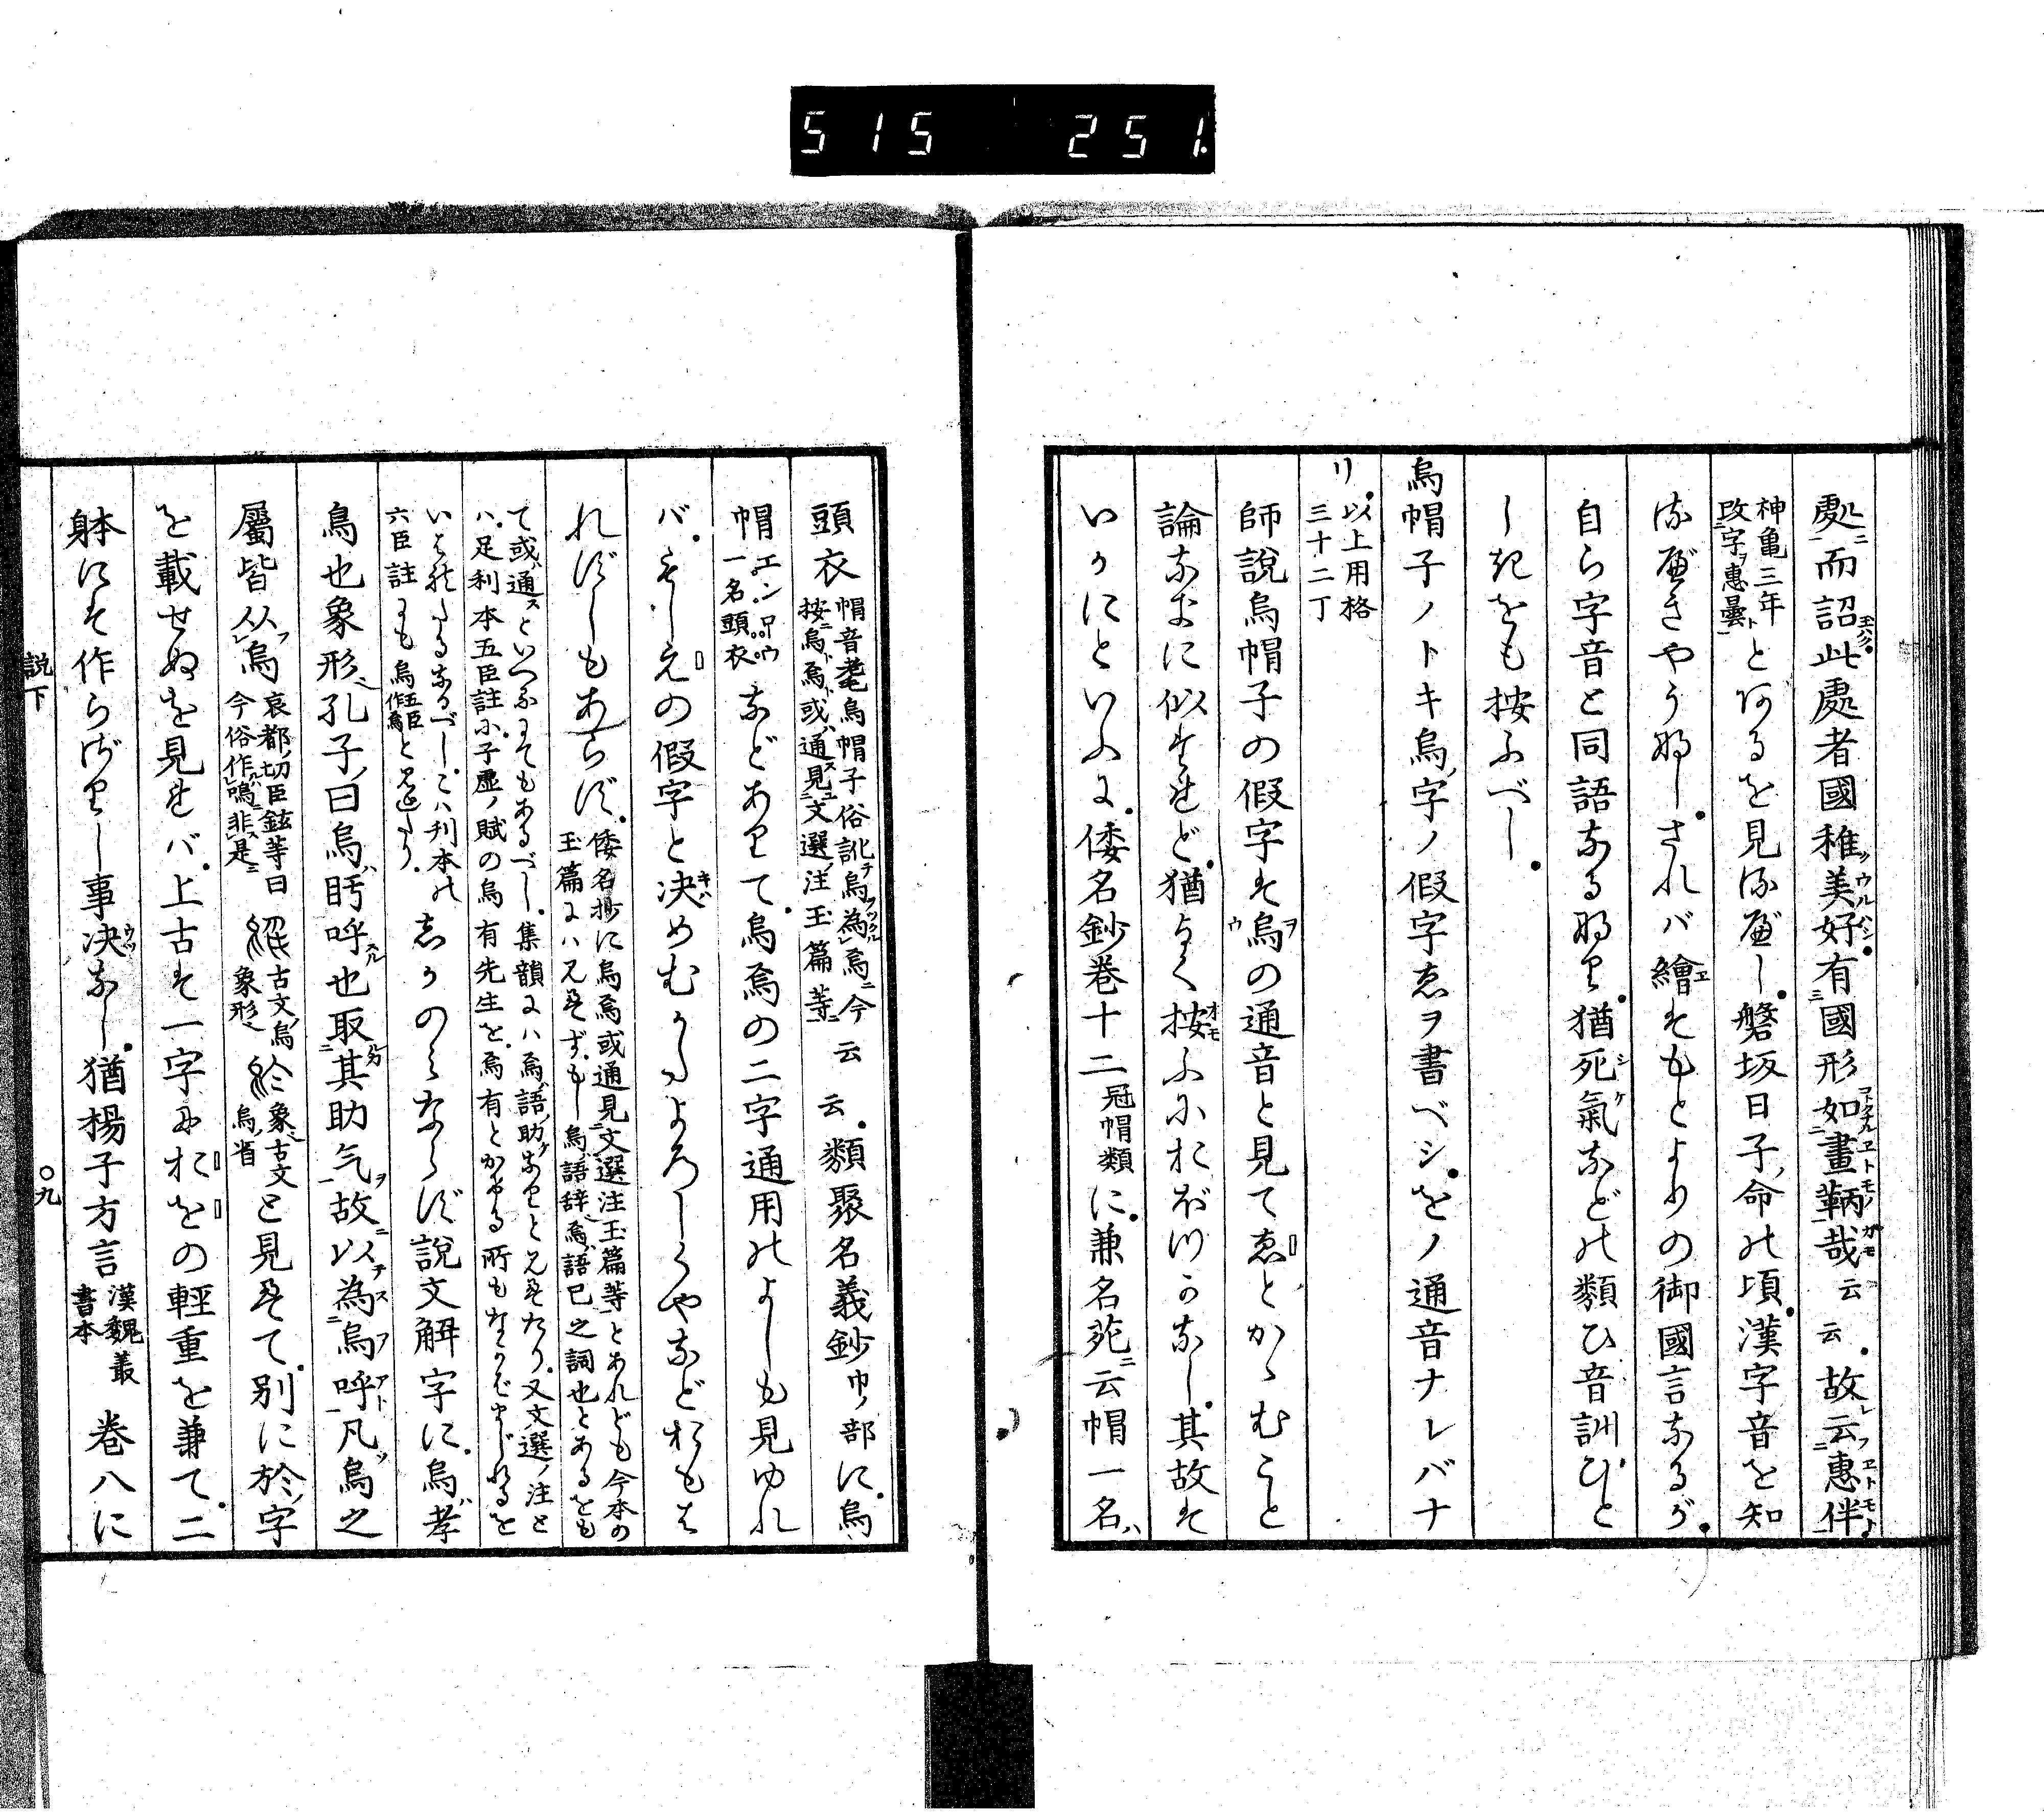 515 251.
處ニ而詔此處者國稚美好有國形如畫鞆哉云云故云惠伴
神亀三年改字惠曇とあるを見るべし磐坂日子命の頃漢字音を知
るべきやうなしされバ繪はもとよりの御國言なるが
自ら字音と同語なるなり猶死氣などの類ひ音訓ひと
しきをも按ふべし
烏帽子ノトキ烏ノ字ノ假字ゑヲ書ベシをノ通音ナレバナ
リ以上用格三十二丁
師説烏帽子の假字は烏の通音と見てゑとかゝむこと
論なきに似たれど猶よく按ふにおぼつかなし其故は
いかにといふに倭名鈔巻十二冠帽類に兼名苑ニ云帽一名ハ
頭衣帽音耄烏帽子俗訛烏為焉今按烏焉或通見文選注玉篇等云云類聚名義鈔巾ノ部に烏
帽エンボウ一名頭衣などありて烏焉の二字通用のよしも見ゆれ
バもしえの假字と决めむかたよろしくやなどおもは
れずしもあらず倭名抄に烏焉或通見文選注玉篇等とあれども今本の玉篇にハ見えずもし烏語辞焉語已之詞也とあるをも
て或通といへるにてもあるべし集韻にハ焉語助なりと見えたり又文選ノ注とハ足利本五臣註に子虚ノ賦の烏有先生を焉有とかける所もなかにまじれるを
いはれたるなるべしこハ利本の六臣註にも烏五臣作焉と見えたりしかのみならず説文解字に烏ハ孝
鳥也象形孔子曰烏盱呼也取其助气故以為烏呼凡烏之
屬皆从烏哀都切臣鉉等曰今俗作嗚非是 古文烏象形 象古文烏省と見えて別に於字
を載せぬを見れバ上古は一字にておをの輕重を兼て二
躰には作らざりし事决なし猶楊子方言漢魏叢書本巻八に
説下
〇九